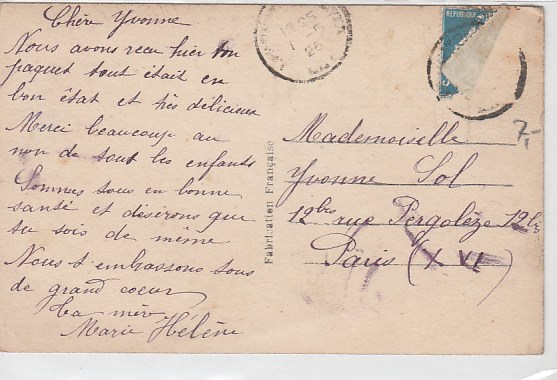 Chère Yvonne
Nous avons reçu hier ton
paquet tout était en
bon état et très délicieux
Merci beaucoup au
nom de tout les enfants
Sommes tous en bonne
santé et désirons que
tu sois de même
Nous t'embrassons tous
de grand coeur
ta mère
Marie Hélène
Fabrication Française
REPUBLIQUE
Mademoiselle
Yvonne Sol
12bis rue Pergolèze 12bis
Paris (XVI)
7,-